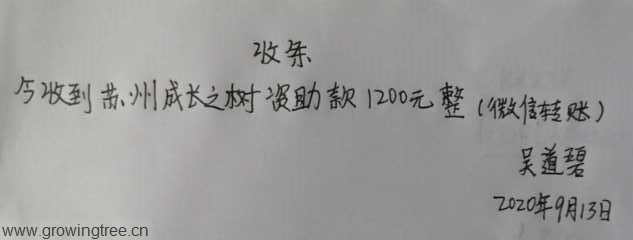 收条
今收到苏州成长之树资助款1200元整(微信转账)
吴道碧
2020年9月13日
www.growingtree.cn